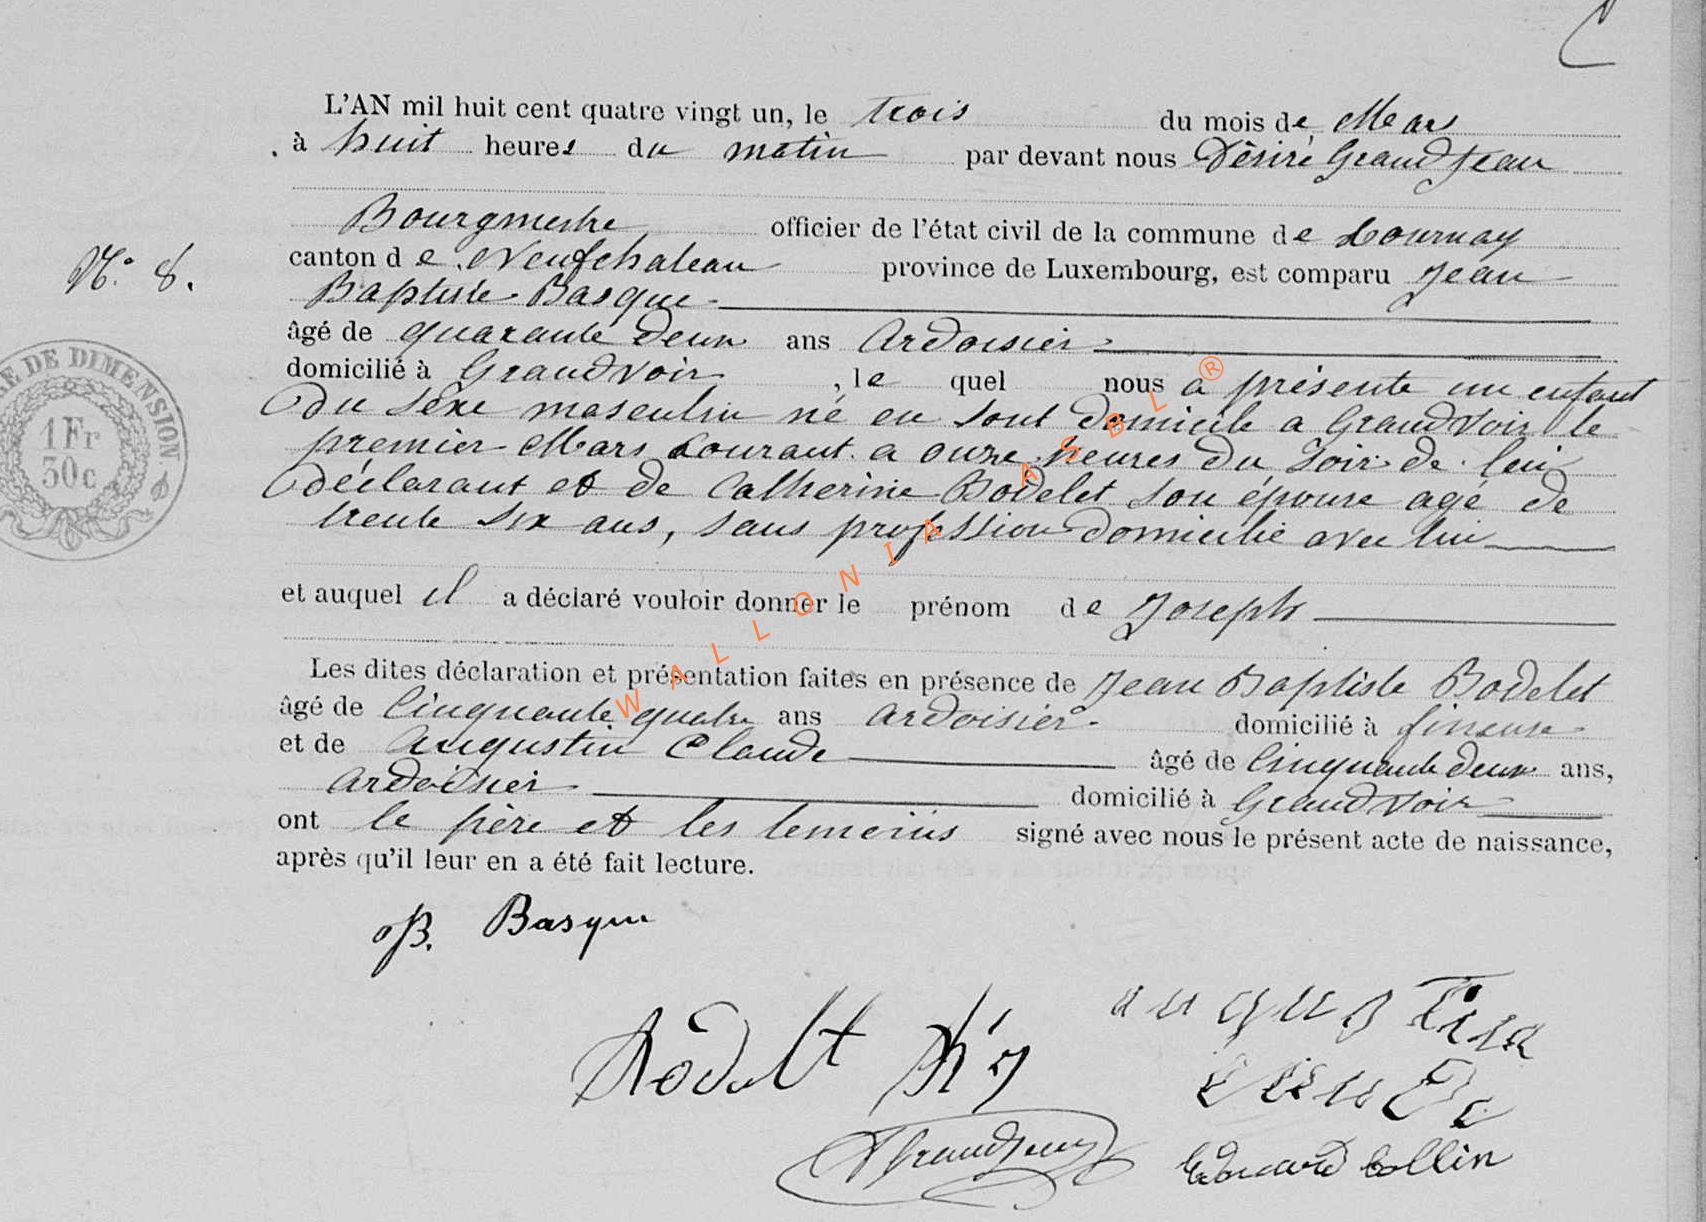 L'AN mil huit cent quatre vingt un, le trois du mois de Mars
à huit heures du matin par devant nous Désiré Grandjean
Bourgmestre officier de l'état civil de la commune de Tournay
canton de Neufchateau province de Luxembourg, est comparu Jean
N° 8.
Baptiste Basque
âgé de quarante deux ans Ardoisier
domicilié à Grandvoir , le quel nous a présenté un enfant
du sexe masculin né en sont domicile a Grandvoir le
premier Mars courant a onze heures du soir de lui
déclarant et de Catherine Bodelet son épouse agé de
trente six ans, sans profession domicilié avec lui
et auquel il a déclaré vouloir donner le prénom de Joseph
Les dites déclaration et présentation faites en présence de Jean Baptiste Bodelet
âgé de Cinquante quatre ans ardoisier domicilié à
et de Augustin Claude âgé de Cinquante deux ans,
ardoisier domicilié à Grandvoir
ont le père et les temoins signé avec nous le présent acte de naissance,
après qu'il leur en a été fait lecture.
RE DE DIMENSION
1 Fr
50c
WALLONIA ASBL ®
JB. Basque
Bodelet
auguStin
Claude
DGrandjean
Edouard Collin